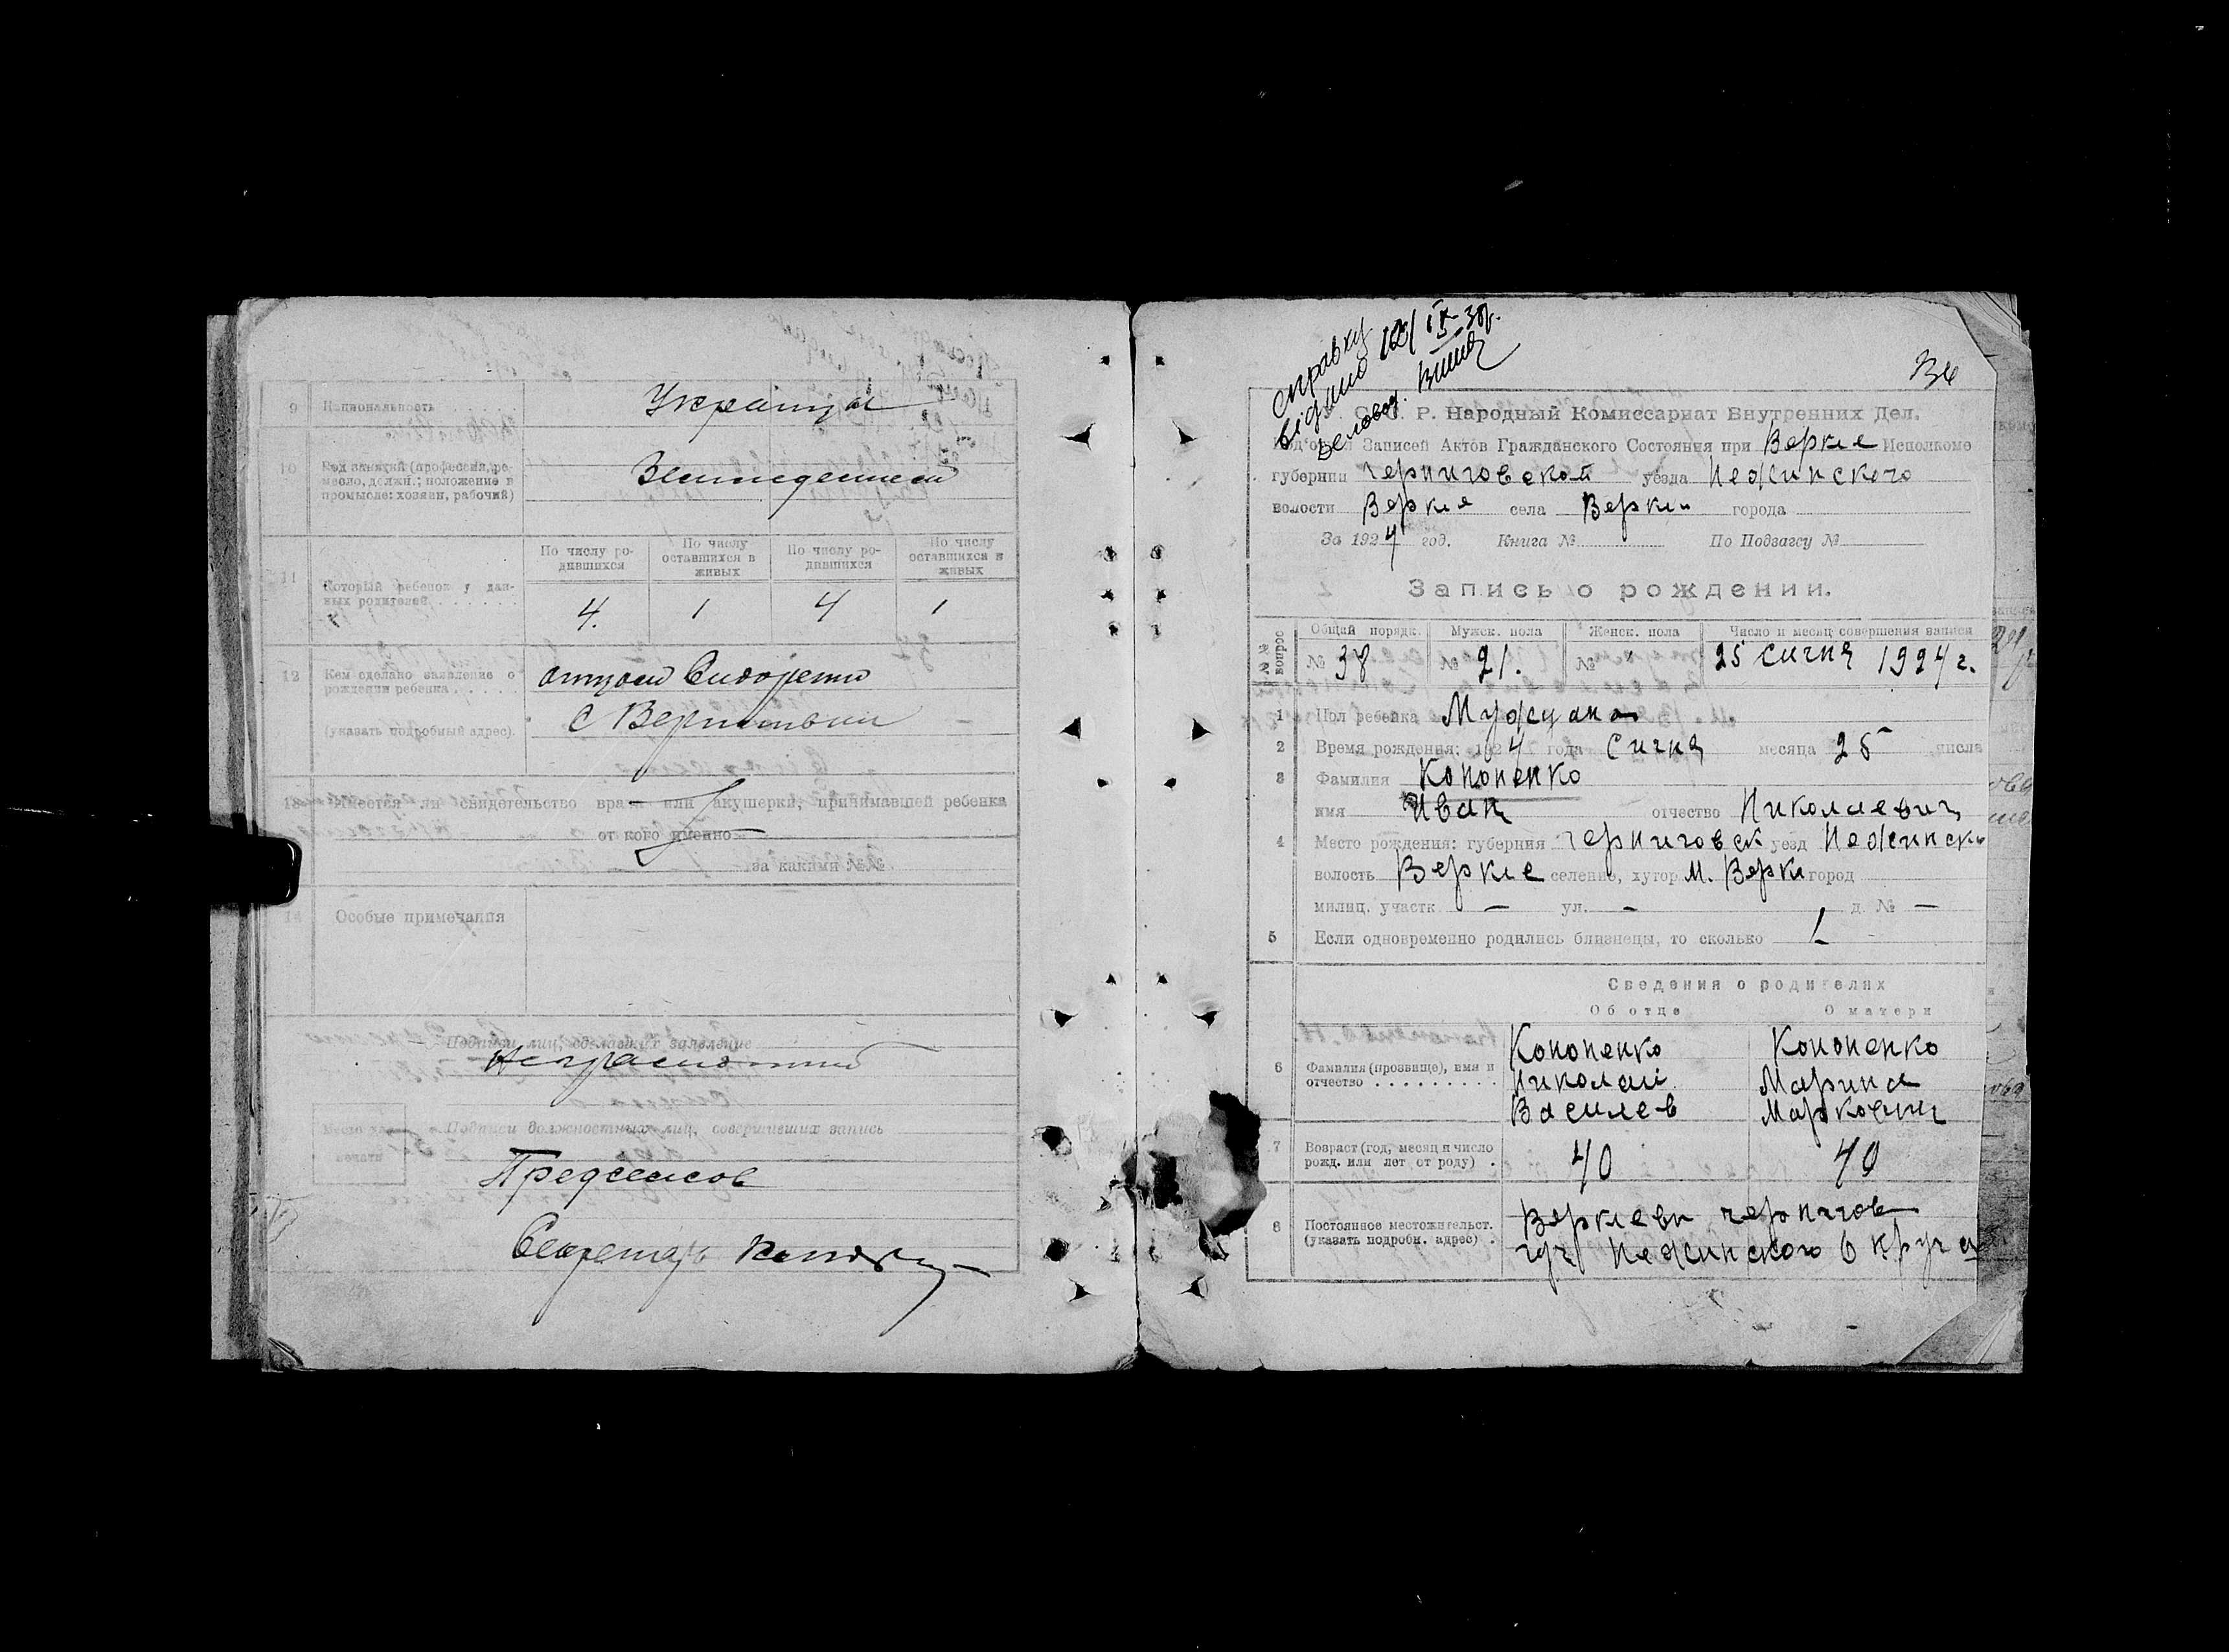 9 Национальность Украинцы
10 Род занятий (профессия, ре-
месло, должн.; положение в
промысле: хозяин, рабочий)
Земледелием
По числу ро-
дившихся По числу
оставшихся в
живых По числу ро-
дившихся По числу
оставшихся в
живых
11 Который ребенок у дан-
ных родителей
4. 1 4 1
12 Кем сделано заявление о
рождении ребенка
отцом
(указать подробный адрес).
с
13 Имеется ли свидетельство врача или акушерки, принимавшей ребенка
от кого именно
за какими №№
14 Особые примечания
Подписи лиц, сделавших заявление
Неграмотный
Место для
печати
Подписи должностных лиц, совершивших запись
Секретарь
справку
видано IX 38р.
Деловод.
36
С. С. Р. Народный Комиссариат Внутренних Дел.
Подотдел Записей Актов Гражданского Состояния при Веркие Исполкоме
губернии Черниговской уезда Нежинского
волости Веркие села Верки города
За 1924 год. Книга № По Подзагсу №
Запись о рождении.
№№ вопрос
Общий порядк. Мужск. пола Женск. пола Число и месяц совершения записи
№ 38 № 21. № " 25 сичня 1924 г.
1 Пол ребенка Мужчина
2 Время рождения: 1924 года Сичня месяца 25 числа
3 Фамилия Кононенко
имя Иван отчество Николаевич
4 Место рождения: губерния Черниговск уезд Нежински
волость Веркие селение, хутор м. Верки город
милиц. участк — ул. — д. № —
5 Если одновременно родились близнецы, то сколько 1
Сведения о родителях
Об отце О матери
6 Фамилия (прозвище), имя и
отчество
Кононенко Кононенко
Николай Марина
Василев Марковна
7 Возраст (год, месяц и число
рожд. или лет от роду)
40 40
8 Постоянное местожительст.
(указать подробн. адрес)
Веркиевк чернигов
губ Нежинского Округа